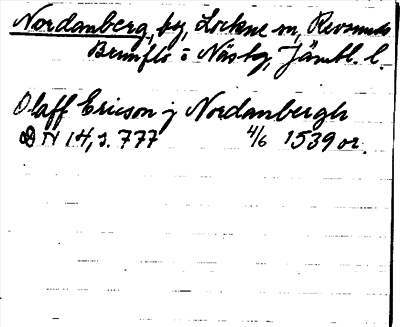 Nordanberg, by, Lockne sn, Revsunds
Brunflo o Näskg, Jämtl. l.
Olaff Ericson j Nordanbergh
DN 14, s. 777 4/6 1539 or.